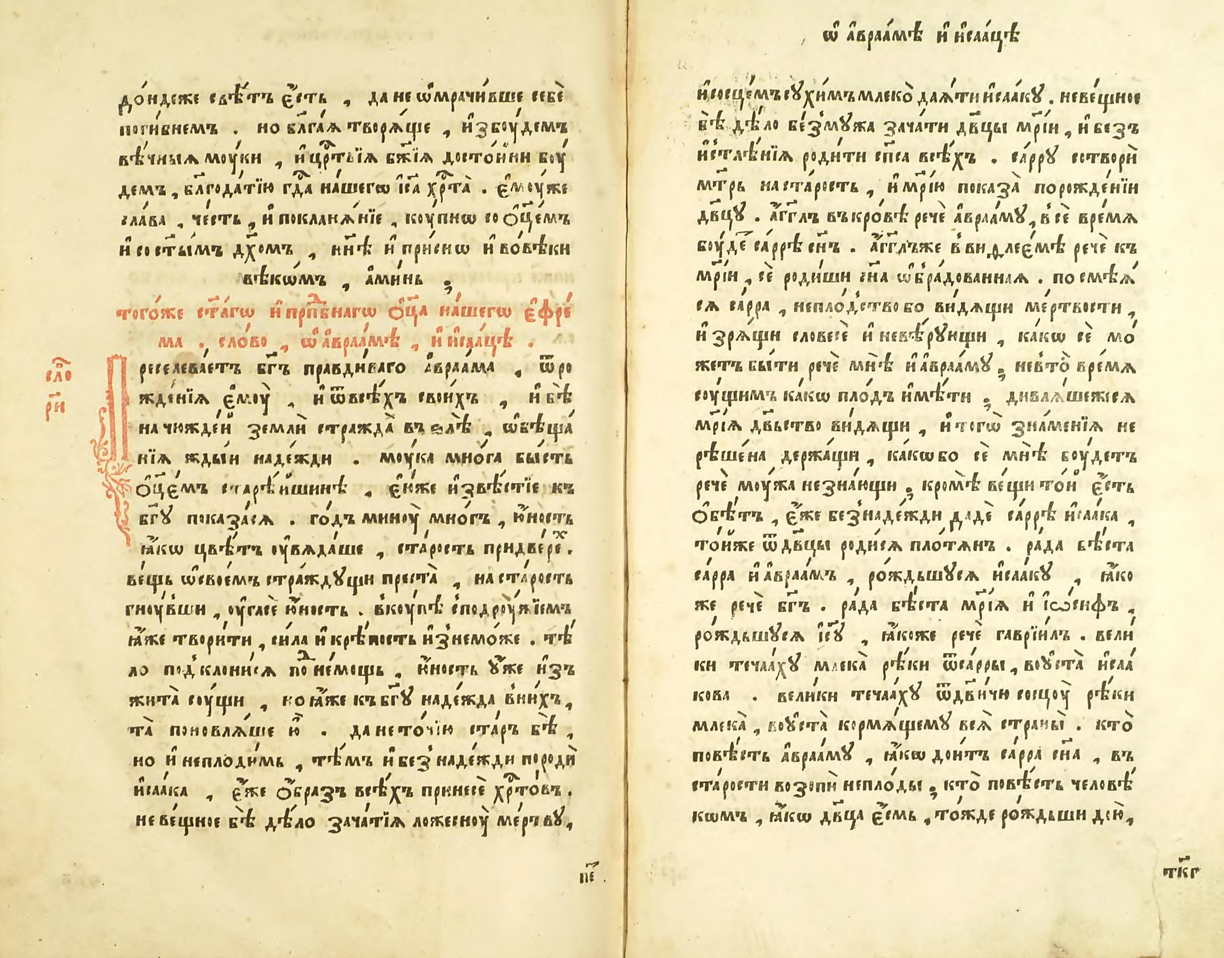 до́ндеже свѣ́тъ є҆́сть , да не ѡ҆мрачи́вше себѐ
поги́бнемъ . но бл҃га́ѧ творѧ́ще , и҆збоу́демъ
вѣ́чныѧ моу́ки , и҆ цр҃твїѧ бж҃їѧ досто́йни боу́
демъ , бл҃года́тїю гд҃а на́шегѡ і҆с҃а хр҃та̀ . є҆моу́же
сла́ва , че́сть , и҆ покланѧ́нїе , коу́пнѡ со ѻ҆ц҃е́мъ
и҆ со ст҃ы́мъ дх҃омъ , нн҃ѣ и҆ при́снѡ и҆ во́вѣки
вѣкѡ́мъ , а҆ми́нь ;
тогѡ́же ст҃а́гѡ и҆ прпⷣбнагѡ ѻ҆ц҃а на́шегѡ є҆фре́
ма . сло́во , ѡ҆ а҆враа́мѣ , и҆ и҆саа́цѣ .
сло́
рн҃
Преселева́етъ бг҃ъ пра́вдиваго а҆враа́ма , ѿ ро
жде́нїѧ є҆моу̀ , и҆ ѿ всѣ́хъ свои́хъ , и҆ бѣ̀
на чюжде́й землѝ стражда̀ въ ѕлѣ̀ , ѡ҆бѣща́
нїѧ жды́й наде́жди . моу́ка мно́га бы́сть
ѻ҆ц҃є́мъ старѣ́йшинѣ , є҆́йже и҆звѣ́стїе къ
бг҃ꙋ показа́сѧ . го́дъ миноу̀ мно́гъ , ю҆́ность
ꙗ҆́кѡ цвѣ́тъ оу҆вѧда́ше , ста́рость при две́реⷯ .
ве́щь ѡ҆ свое́мъ стра́ждꙋщи преста̀ , на ста́рость
гноу́вши , оу҆гасѐ ю҆́ность . вкоу́пѣ с подроу́жїемъ
ꙗ҆́же твори́ти , си́ла и҆ крѣ́пость и҆знемо́же . тѣ́
ло подклони́сѧ поⷣ не́мощь , ю҆́ность ᲂу҆́же и҆зъ
жита̀ соу́щи , но ꙗ҆́же къ бг҃ꙋ наде́жда в ни́хъ ,
та̀ поновлѧ́ше ю҆̀ . да не то́чїю ста́ръ бѣ̀ ,
но и҆ непло́димь , тѣ́мъ и҆ без наде́жди породѝ
и҆саа́ка , є҆́же ѻ҆́бразъ всѣ́хъ принесѐ хр҃то́въ .
не ве́щное бѣ̀ дѣ́ло зача́тїѧ ложесноу̀ ме́ртвꙋ ,
пе҃
ѡ҆ а҆враа́мѣ и҆ и҆саа́цѣ
и҆ сосце́мъ сꙋхи́мъ млеко̀ даѧ́ти и҆саа́кꙋ . не ве́щное
бѣ̀ дѣ́ло без мꙋ́жа зача́ти дв҃цы мр҃і́и , и҆ безъ
и҆стлѣ́нїѧ роди́ти сп҃са всѣ́хъ . са́ррꙋ сотворѝ
мт҃рь на ста́рость , и҆ мр҃і́ю показа̀ по рожде́нїи
дв҃цꙋ . а҆́гг҃лъ в ъкро́вѣ речѐ а҆враа́мꙋ , в сѐ вре́мѧ
боу́деⷮ са́ррѣ сн҃ъ . а҆́гг҃лъже в виѳлее́мѣ речѐ къ
мр҃і́и , сѐ роди́ши сн҃а ѡ҆бра́дованнаѧ . посмѣѧ́
сѧ са́рра , непло́дство бо ви́дѧщи ме́ртвости ,
и҆ зрѧ́щи словесѐ и҆ невѣ́рꙋющи , ка́кѡ сѐ мо́
жетъ бы́ти речѐ мнѣ̀ и҆ а҆враа́мꙋ ; не в то̀ вре́мѧ
соу́щимъ ка́кѡ пло́дъ и҆мѣ́ти ; дивлѧ́шежесѧ
мр҃і́ѧ дв҃ьство ви́дѧщи , и҆ тогѡ̀ зна́менїѧ не
рѣше́на держа́щи , ка́кѡ бо сѐ мнѣ̀ боу́детъ
речѐ моу́жа не зна́ющи ; кромѣ̀ ве́щи то́й є҆́сть
ѻ҆бѣ́тъ , є҆́же без наде́жди дадѐ са́ррѣ и҆саа́ка ,
то́йже ѿ дв҃цы роди́сѧ пло́тѧнъ . ра́да бѣ́ста
са́рра и҆ а҆враа́мъ , ро́ждьшꙋсѧ и҆саа́кꙋ , ꙗ҆́ко
же речѐ бг҃ъ . ра́да бѣ́ста мр҃і́ѧ и҆ і҆ѡ́сифъ ,
ро́ждьшꙋсѧ і҆с҃ꙋ , ꙗ҆́коже речѐ гаврїи́лъ . вели́
ки теча́ахꙋ млека̀ рѣ́ки ѿ са́рры , во ᲂу҆ста̀ и҆саа́
кова . вели́ки теча́ахꙋ ѿ дв҃ичю сосцоу̀ рѣ́ки
млека̀ , во ᲂу҆ста̀ кормѧ́щемꙋ всѧ̀ страны̀ . кто̀
повѣ́сть а҆враа́мꙋ , ꙗ҆́кѡ до́итъ са́рра сн҃а , въ
ста́рости возопѝ непло́ды ; кто̀ повѣ́сть человѣ́
кѡмъ , ꙗ҆́кѡ дв҃ца є҆́смь , то́жде ро́ждьши дою̀ ,
тк҃г